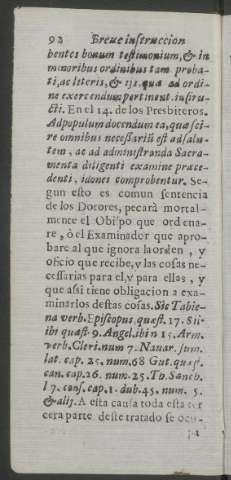 92 Breue instruccion
bentes bonum testimonium, & in
minoribus ordinibus tam proba-
ti, ac literis, & ijs. quæ ad ordi-
ne exercendum pertinent. instru-
cti. En el 14. de los Presbiteros.
Ad populum docendum ea, quæ sci-
re omnibus necessariũ est ad salu-
tem, ac ad administranda Sacra-
menta diligenti examine præce-
denti, idonei comprobentur. Se-
gun esto es comun sentencia
de los Dotores, pecarà mortal-
mente el Obispo que ordena-
re, ò el Examinador que apro-
bare al que ignora la orden, y
oficio que recibe, y las cosas ne-
cessarias para el, y para ellas, y
que assi tiene obligacion a exa-
minarlos destas cosas. Sic Tabie-
na verb. Episcopus quæst. 17. Sil-
ibi quæst. 9. Angel. ibi n 15. Arm.
verb. Cleri. num 7. Nauar. sum.
lat. cap. 25. num. 68 Gut. quæst.
can. cap. 26. num. 25. Th. Sanch.
l 7. cons. cap. 1. dub. 45. num. 5.
& alij. A esta causa toda esta ter
cera parte deste tratado se ocu-